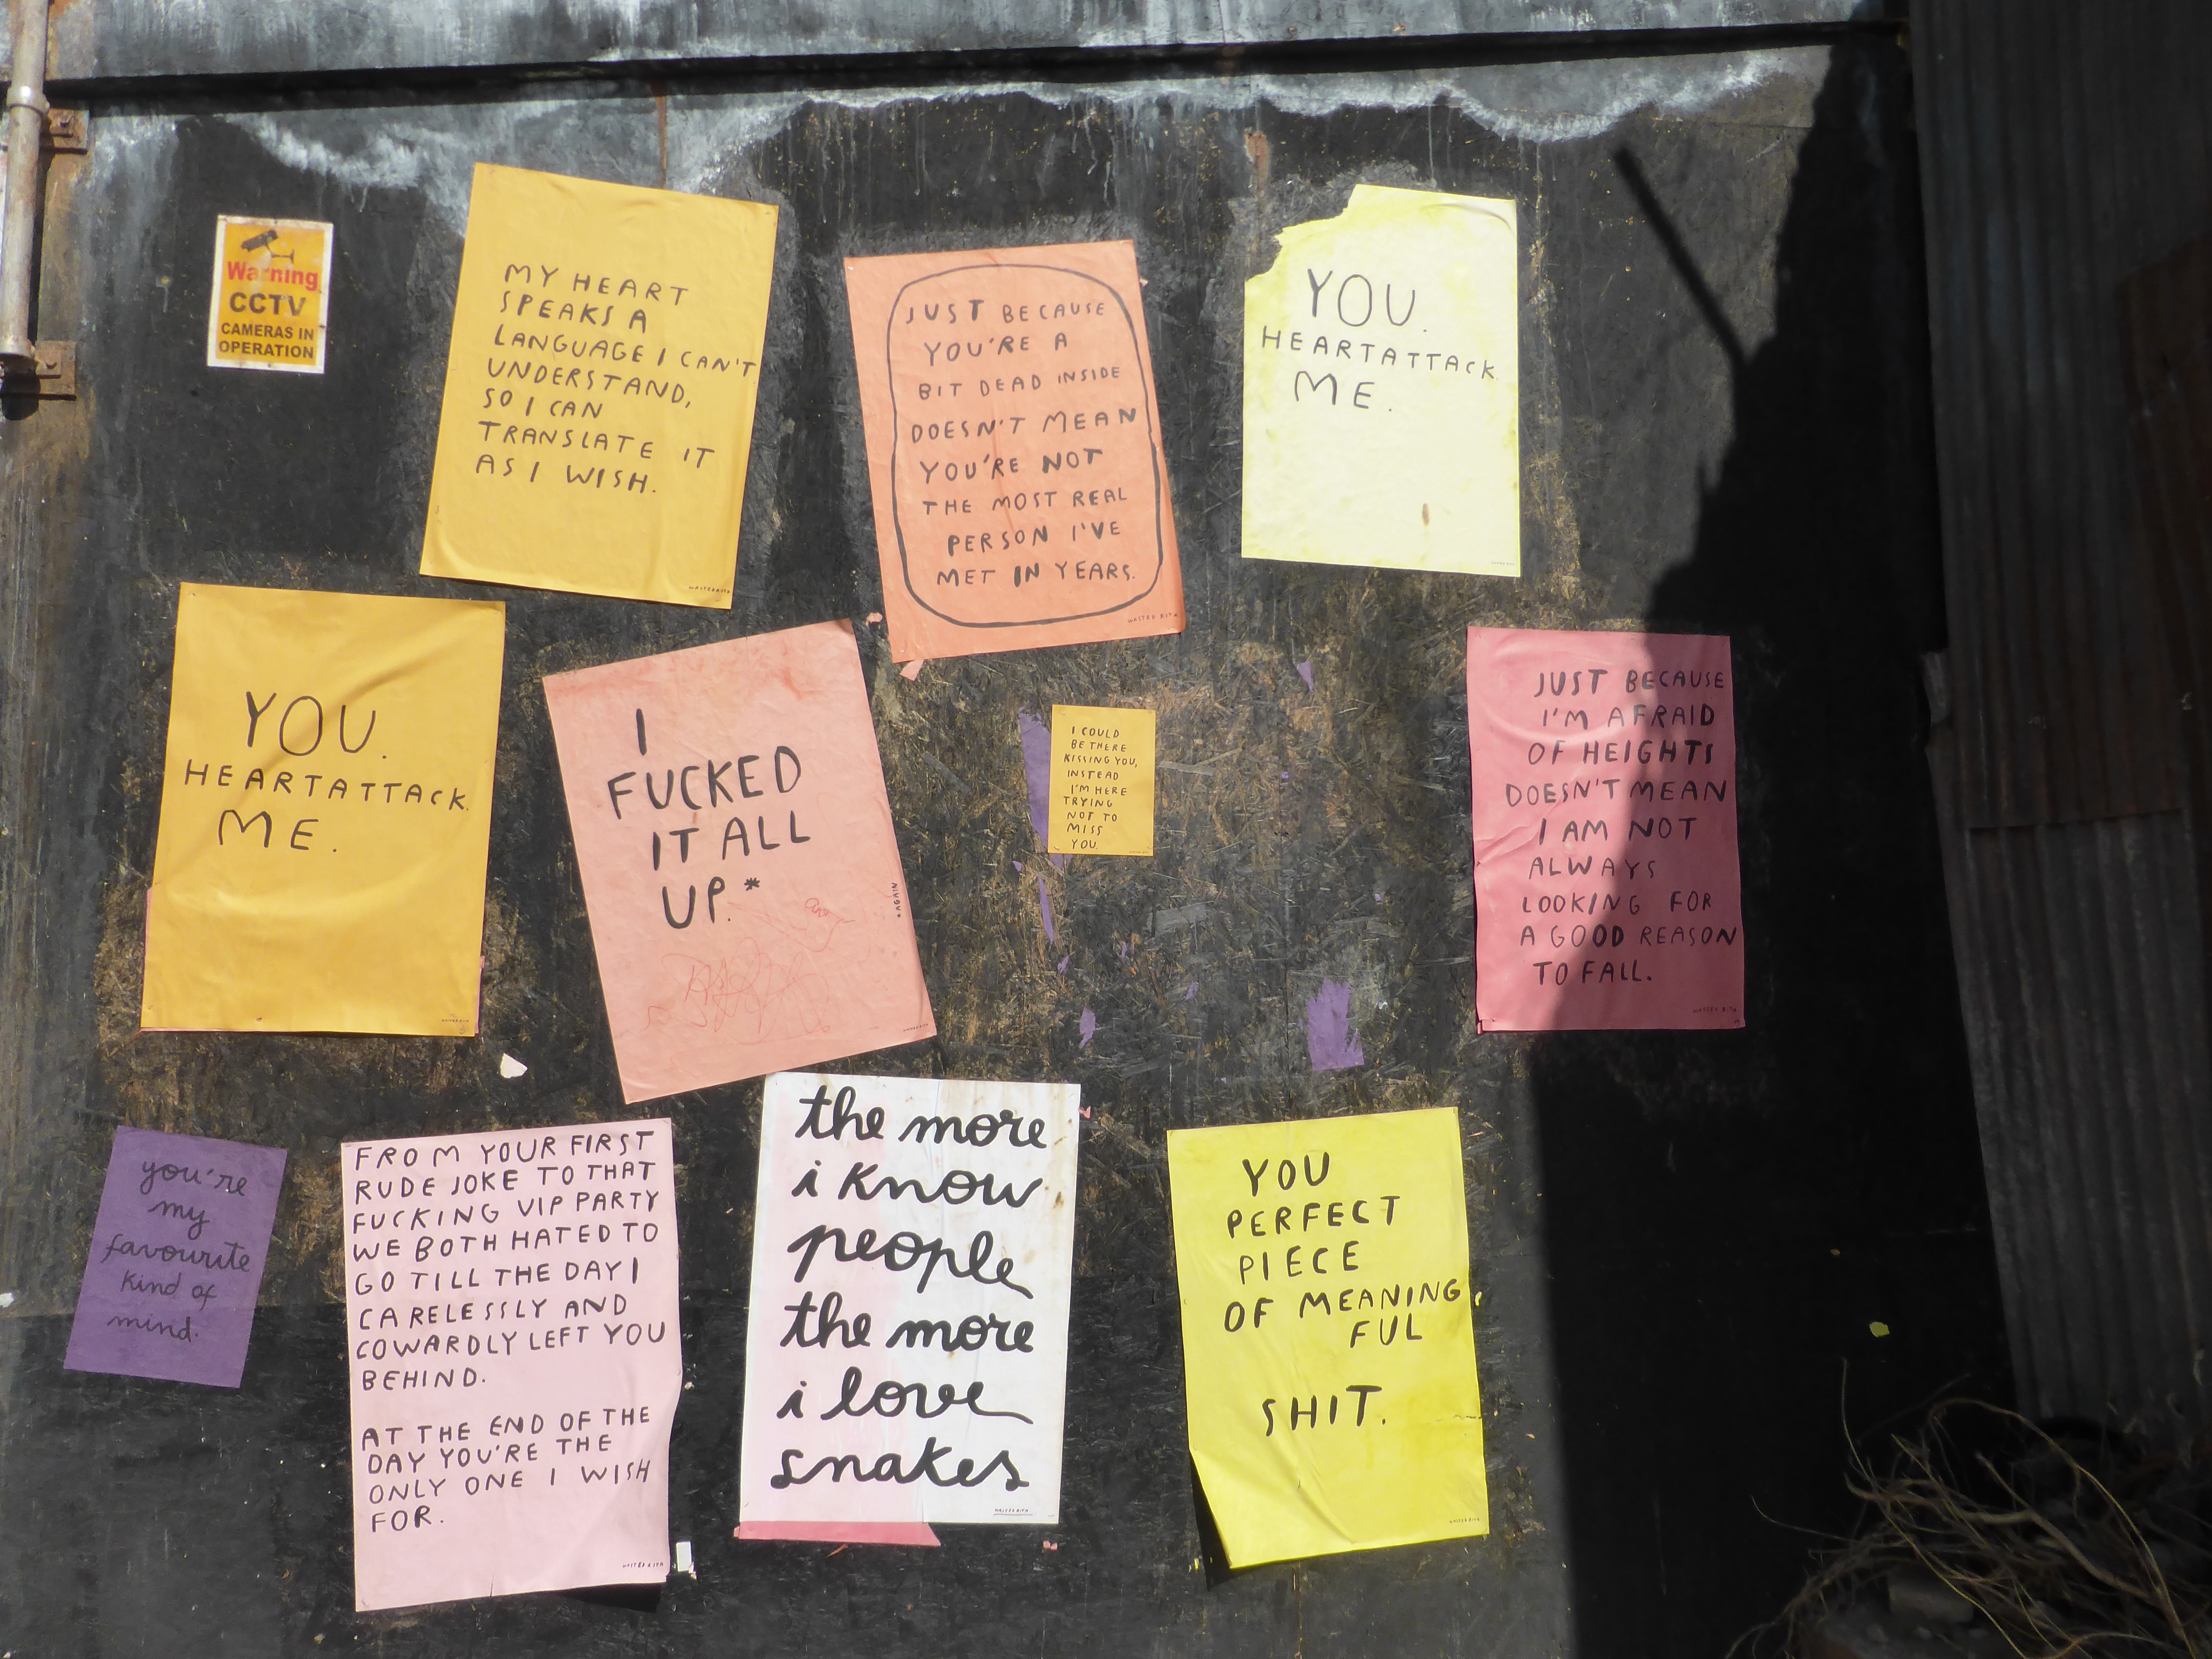 Warning
CCTV
CAMERAS IN
OPERATION
MY HEART
SPEAKS A
LANGUAGE I CAN'T
UNDERSTAND,
SO I CAN
TRANSLATE IT
AS I WISH.
WASTED RITA
JUST BECAUSE
YOU'RE A
BIT DEAD INSIDE
DOESN'T MEAN
YOU'RE NOT
THE MOST REAL
PERSON I'VE
MET IN YEARS.
WASTED RITA
YOU.
HEARTATTACK.
ME.
YOU.
HEARTATTACK.
ME.
WASTED RITA
I
FUCKED
IT ALL
UP.*
*AGAIN
WASTED RITA
I COULD
BE THERE
KISSING YOU,
INSTEAD
I'M HERE
TRYING
NOT TO
MISS
YOU.
JUST BECAUSE
I'M AFRAID
OF HEIGHTS
DOESN'T MEAN
I AM NOT
ALWAYS
LOOKING FOR
A GOOD REASON
TO FALL.
WASTED RITA
you're
my
favourite
kind of
mind.
FROM YOUR FIRST
RUDE JOKE TO THAT
FUCKING VIP PARTY
WE BOTH HATED TO
GO TILL THE DAY I
CARELESSLY AND
COWARDLY LEFT YOU
BEHIND.
AT THE END OF THE
DAY YOU'RE THE
ONLY ONE I WISH
FOR.
WASTED RITA
the more
i know
people
the more
i love
snakes
WASTED RITA
YOU
PERFECT
PIECE
OF MEANING
FUL
SHIT.
WASTED RITA